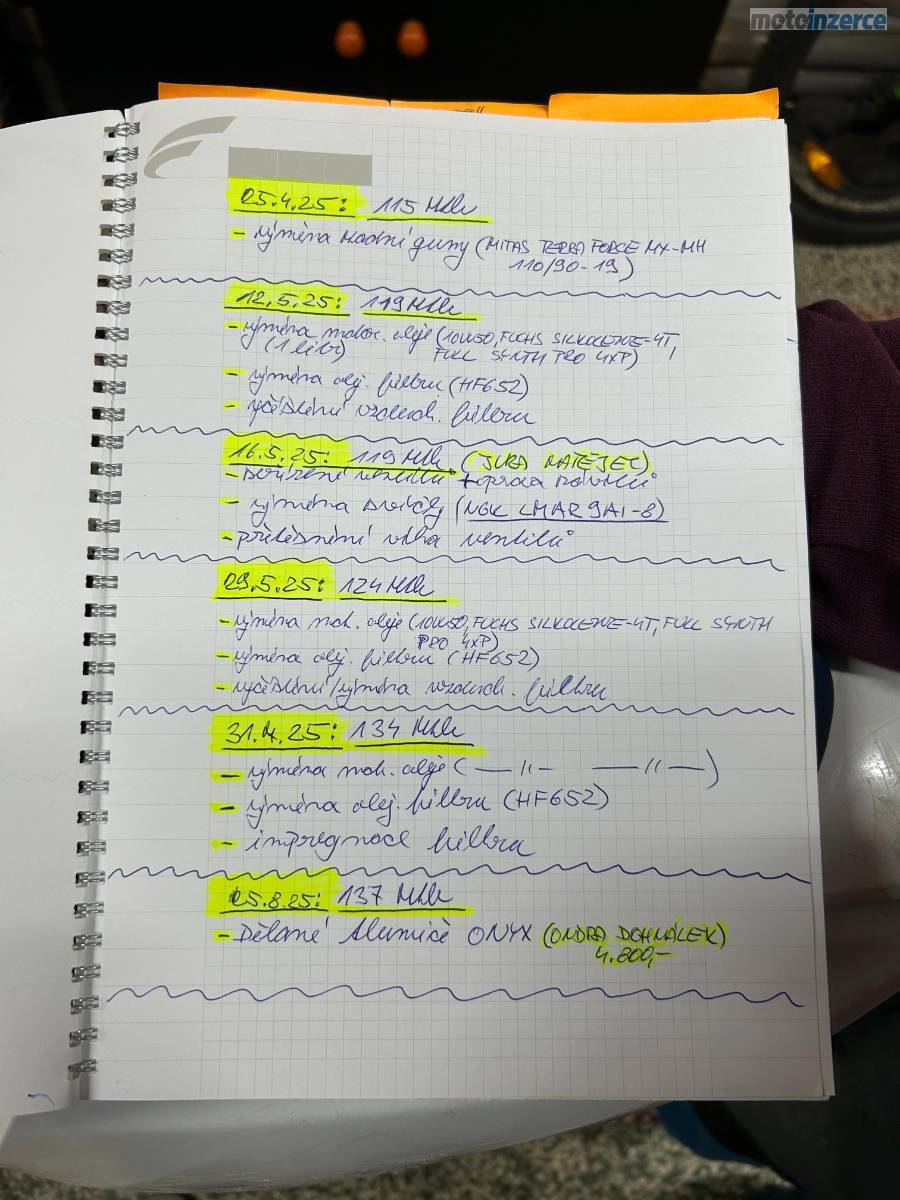 motoinzerce
25.4.25: 115 Mth
- výměna zadní gumy (MITAS TERRA FORCE MX-MH
110/90-19)
12.5.25: 119 Mth
- výměna motor. oleje (10W50, FUCHS SILKOLENE-4T,
(1 litr) FULL SYNTH PRO 4XP)
- výměna olej. filtru (HF652)
- vyčištění vzduch. filtru
16.5.25: 119 Mth (JURA MATĚJEC)
- seřízení ventilů + oprava
- výměna svíčky (NGK LMAR9AI-8)
- přetěsnění víka ventilů
29.5.25: 124 Mth
- výměna mot. oleje (10W50, FUCHS SILKOLENE-4T, FULL SYNTH
PRO 4XP)
- výměna olej. filtru (HF652)
- vyčištění/výměna vzduch. filtru
31.7.25: 134 Mth
- výměna mot. oleje (—〃— —〃—)
- výměna olej. filtru (HF652)
- impregnace filtru
25.8.25: 137 Mth
- Dělané tlumiče ONYX (ONDRA DOHNÁLEK)
4.800,-